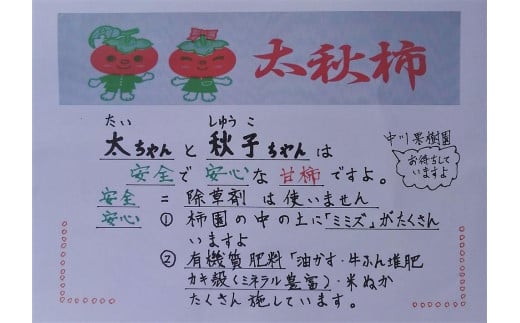 太秋柿
たい しゅうこ
太ちゃんと秋子ちゃんは
安全で安心な甘柿ですよ。
中川果樹園
お待ちして
いますよ
安全 = 除草剤は使いません
安心 ① 柿園の中の土に「ミミズ」がたくさん
いますよ
② 有機質肥料「油かす・牛ふん堆肥
カキ殻(ミネラル豊富)・米ぬか
たくさん施しています。